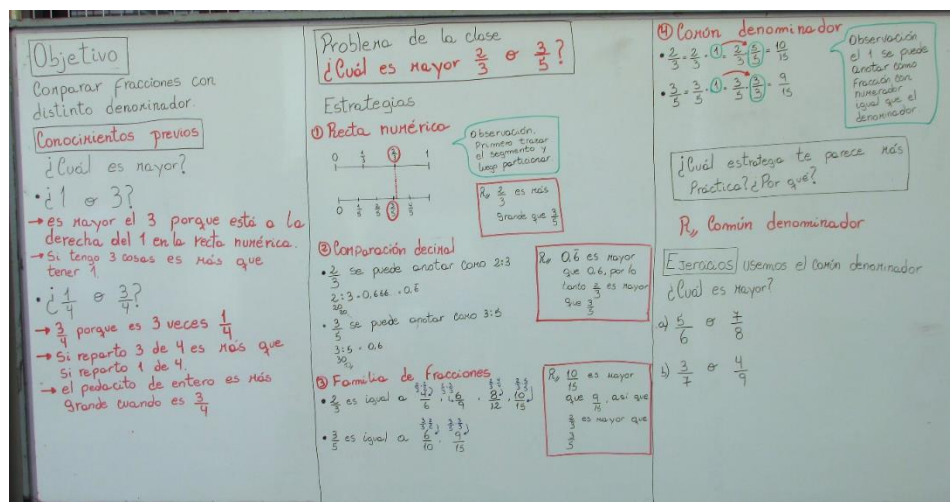 Objetivo
Comparar fracciones con
distinto denominador.
Conocimientos previos
¿Cuál es mayor?
• ¿1 o 3?
→ es mayor el 3 porque está a la
derecha del 1 en la recta numérica.
→ Si tengo 3 cosas es más que
tener 1.
• ¿1/4 o 3/4?
→ 3/4 porque es 3 veces 1/4
→ Si reparto 3 de 4 es más que
si reparto 1 de 4.
→ el pedacito de entero es más
grande cuando es 3/4
Problema de la clase
¿Cuál es mayor 2/3 o 3/5?
Estrategias
① Recta numérica
0 1/3 2/3 1
0 1/5 2/5 3/5
Observación.
Primero trazar
el segmento y
luego particionar
R,, 2/3 es más
grande que 3/5
② Comparación decimal
• 2/3 se puede anotar como 2:3
2:3 = 0,666.. = 0,6̄
20
• 3/5 se puede anotar como 3:5
3:5 = 0,6
30
R,, 0,6̄ es mayor
que 0,6, por lo
tanto 2/3 es mayor
que 3/5
③ Familia de fracciones
• 2/3 es igual a 4/6, 6/9, 8/12, 10/15
• 3/5 es igual a 6/10, 9/15
R,, 10/15 es mayor
que 9/15, así que
2/3 es mayor que
3/5
④ Común denominador
• 2/3 = 2/3 · 1 = 2/3 · 5/5 = 10/15
• 3/5 = 3/5 · 1 = 3/5 · 3/3 = 9/15
Observación
el 1 se puede
anotar como
fracción con
numerador
igual que el
denominador
¿Cuál estratega te parece más
práctica? ¿Por qué?
R,, Común denominador
Ejercicios usemos el común denominador
¿Cuál es mayor?
a) 5/6 o 7/8
b) 3/7 o 4/9